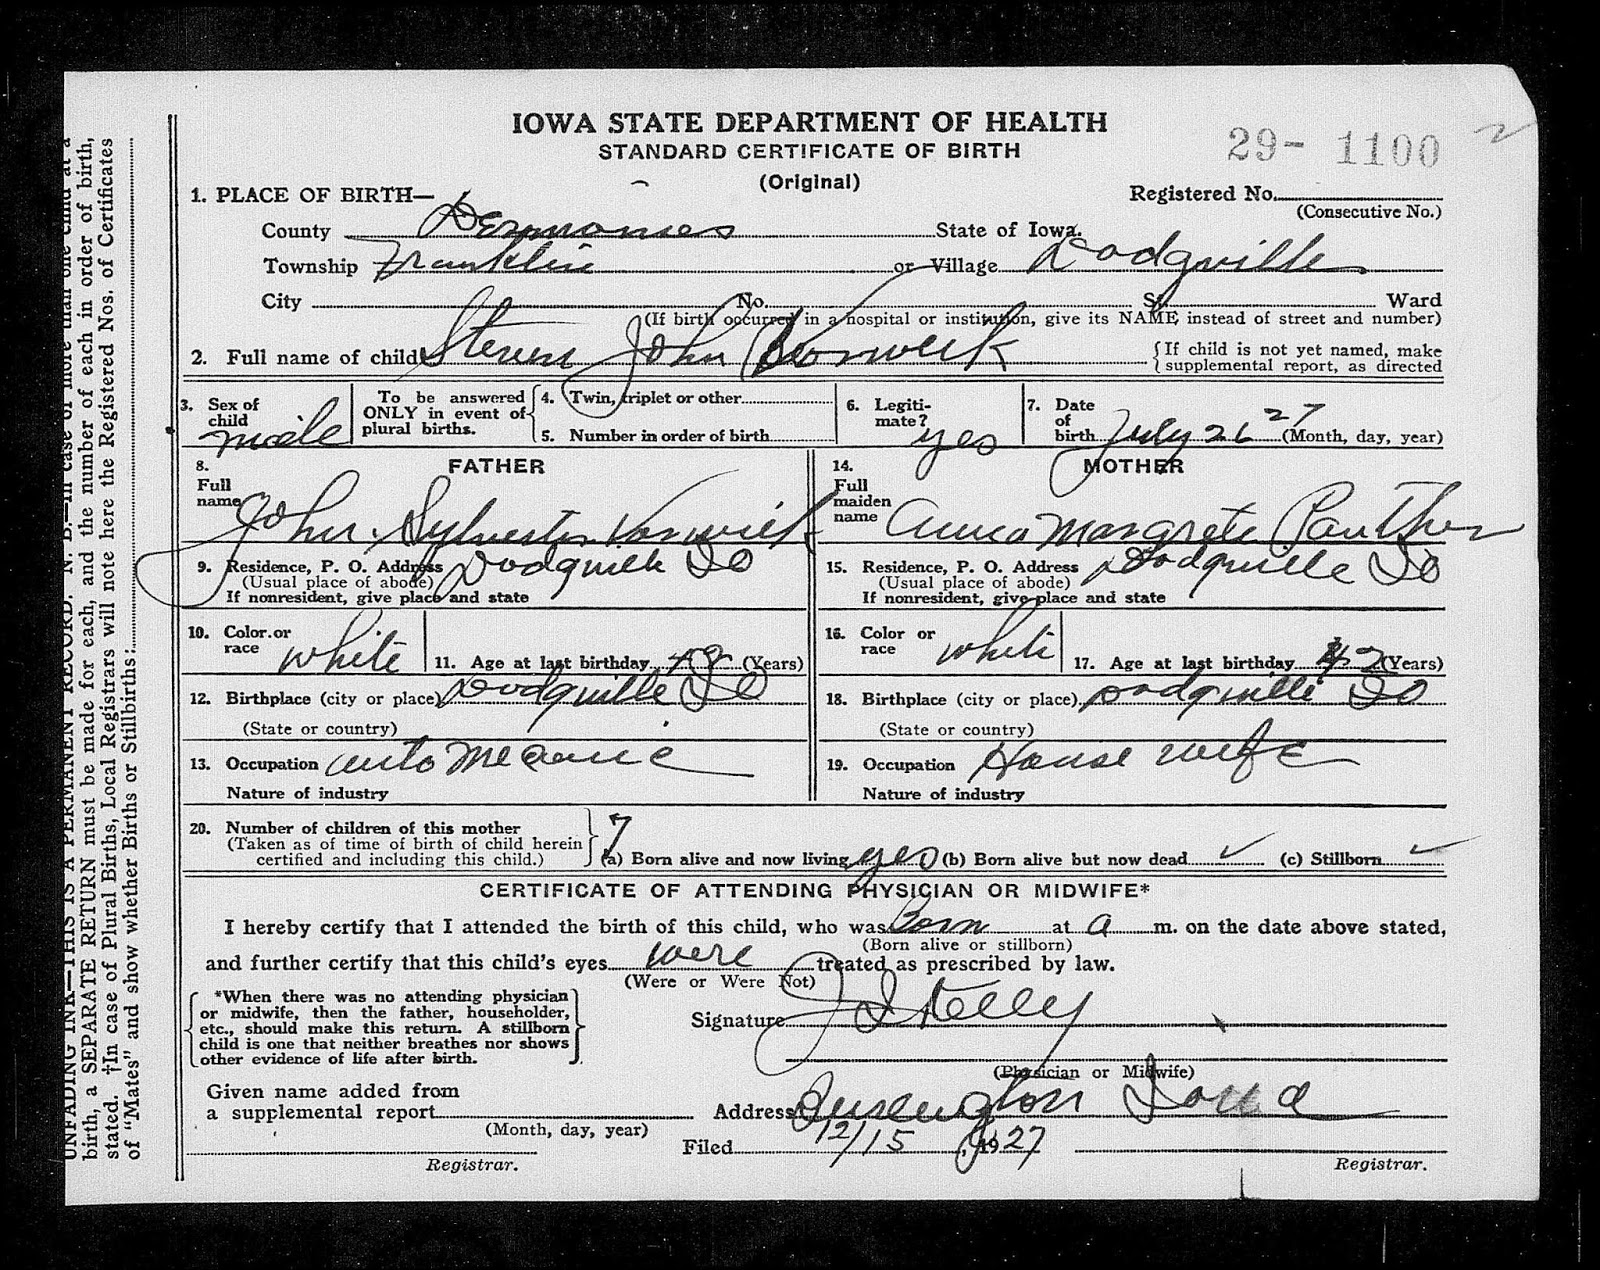 IOWA STATE DEPARTMENT OF HEALTH
STANDARD CERTIFICATE OF BIRTH
29- 1100 2
(Original)
1. PLACE OF BIRTH—
Registered No.
(Consecutive No.)
County Desmoines State of Iowa.
Township Franklin or Village Dodgville
City No. St. Ward
(If birth occurred in a hospital or institution, give its NAME instead of street and number)
2. Full name of child Steven John Vorwerk
{If child is not yet named, make
supplemental report, as directed
3. Sex of child male
To be answered ONLY in event of plural births.
4. Twin, triplet or other
5. Number in order of birth
6. Legitimate? yes
7. Date of birth July 26 27 (Month, day, year)
FATHER
8. Full name John Sylvester Vorwick
9. Residence, P. O. Address Dodgville Io
(Usual place of abode)
If nonresident, give place and state
10. Color or race white
11. Age at last birthday (Years)
12. Birthplace (city or place) Dodgville Io
(State or country)
13. Occupation auto mecanic
Nature of industry
MOTHER
14. Full maiden name Anna Margrete Panther
15. Residence, P. O. Address Dodgville Io
(Usual place of abode)
If nonresident, give place and state
16. Color or race white
17. Age at last birthday 42 (Years)
18. Birthplace (city or place) Dodgville Io
(State or country)
19. Occupation House wife
Nature of industry
20. Number of children of this mother
(Taken as of time of birth of child herein
certified and including this child.)
7
(a) Born alive and now living yes (b) Born alive but now dead ✓ (c) Stillborn ✓
CERTIFICATE OF ATTENDING PHYSICIAN OR MIDWIFE*
I hereby certify that I attended the birth of this child, who was Born at a m. on the date above stated,
(Born alive or stillborn)
and further certify that this child's eyes were treated as prescribed by law.
(Were or Were Not)
*When there was no attending physician
or midwife, then the father, householder,
etc., should make this return. A stillborn
child is one that neither breathes nor shows
other evidence of life after birth.
Signature
(Physician or Midwife)
Given name added from
a supplemental report
(Month, day, year)
Registrar.
Address Burlington Iowa
Filed 12/15, 1927
Registrar.
UNFADING INK—THIS IS A PERMANENT RECORD. N. B.—In case of more than one child at a
birth, a SEPARATE RETURN must be made for each, and the number of each in order of birth,
stated. †In case of Plural Births, Local Registrars will note here the Registered Nos. of Certificates
of "Mates" and show whether Births or Stillbirths: